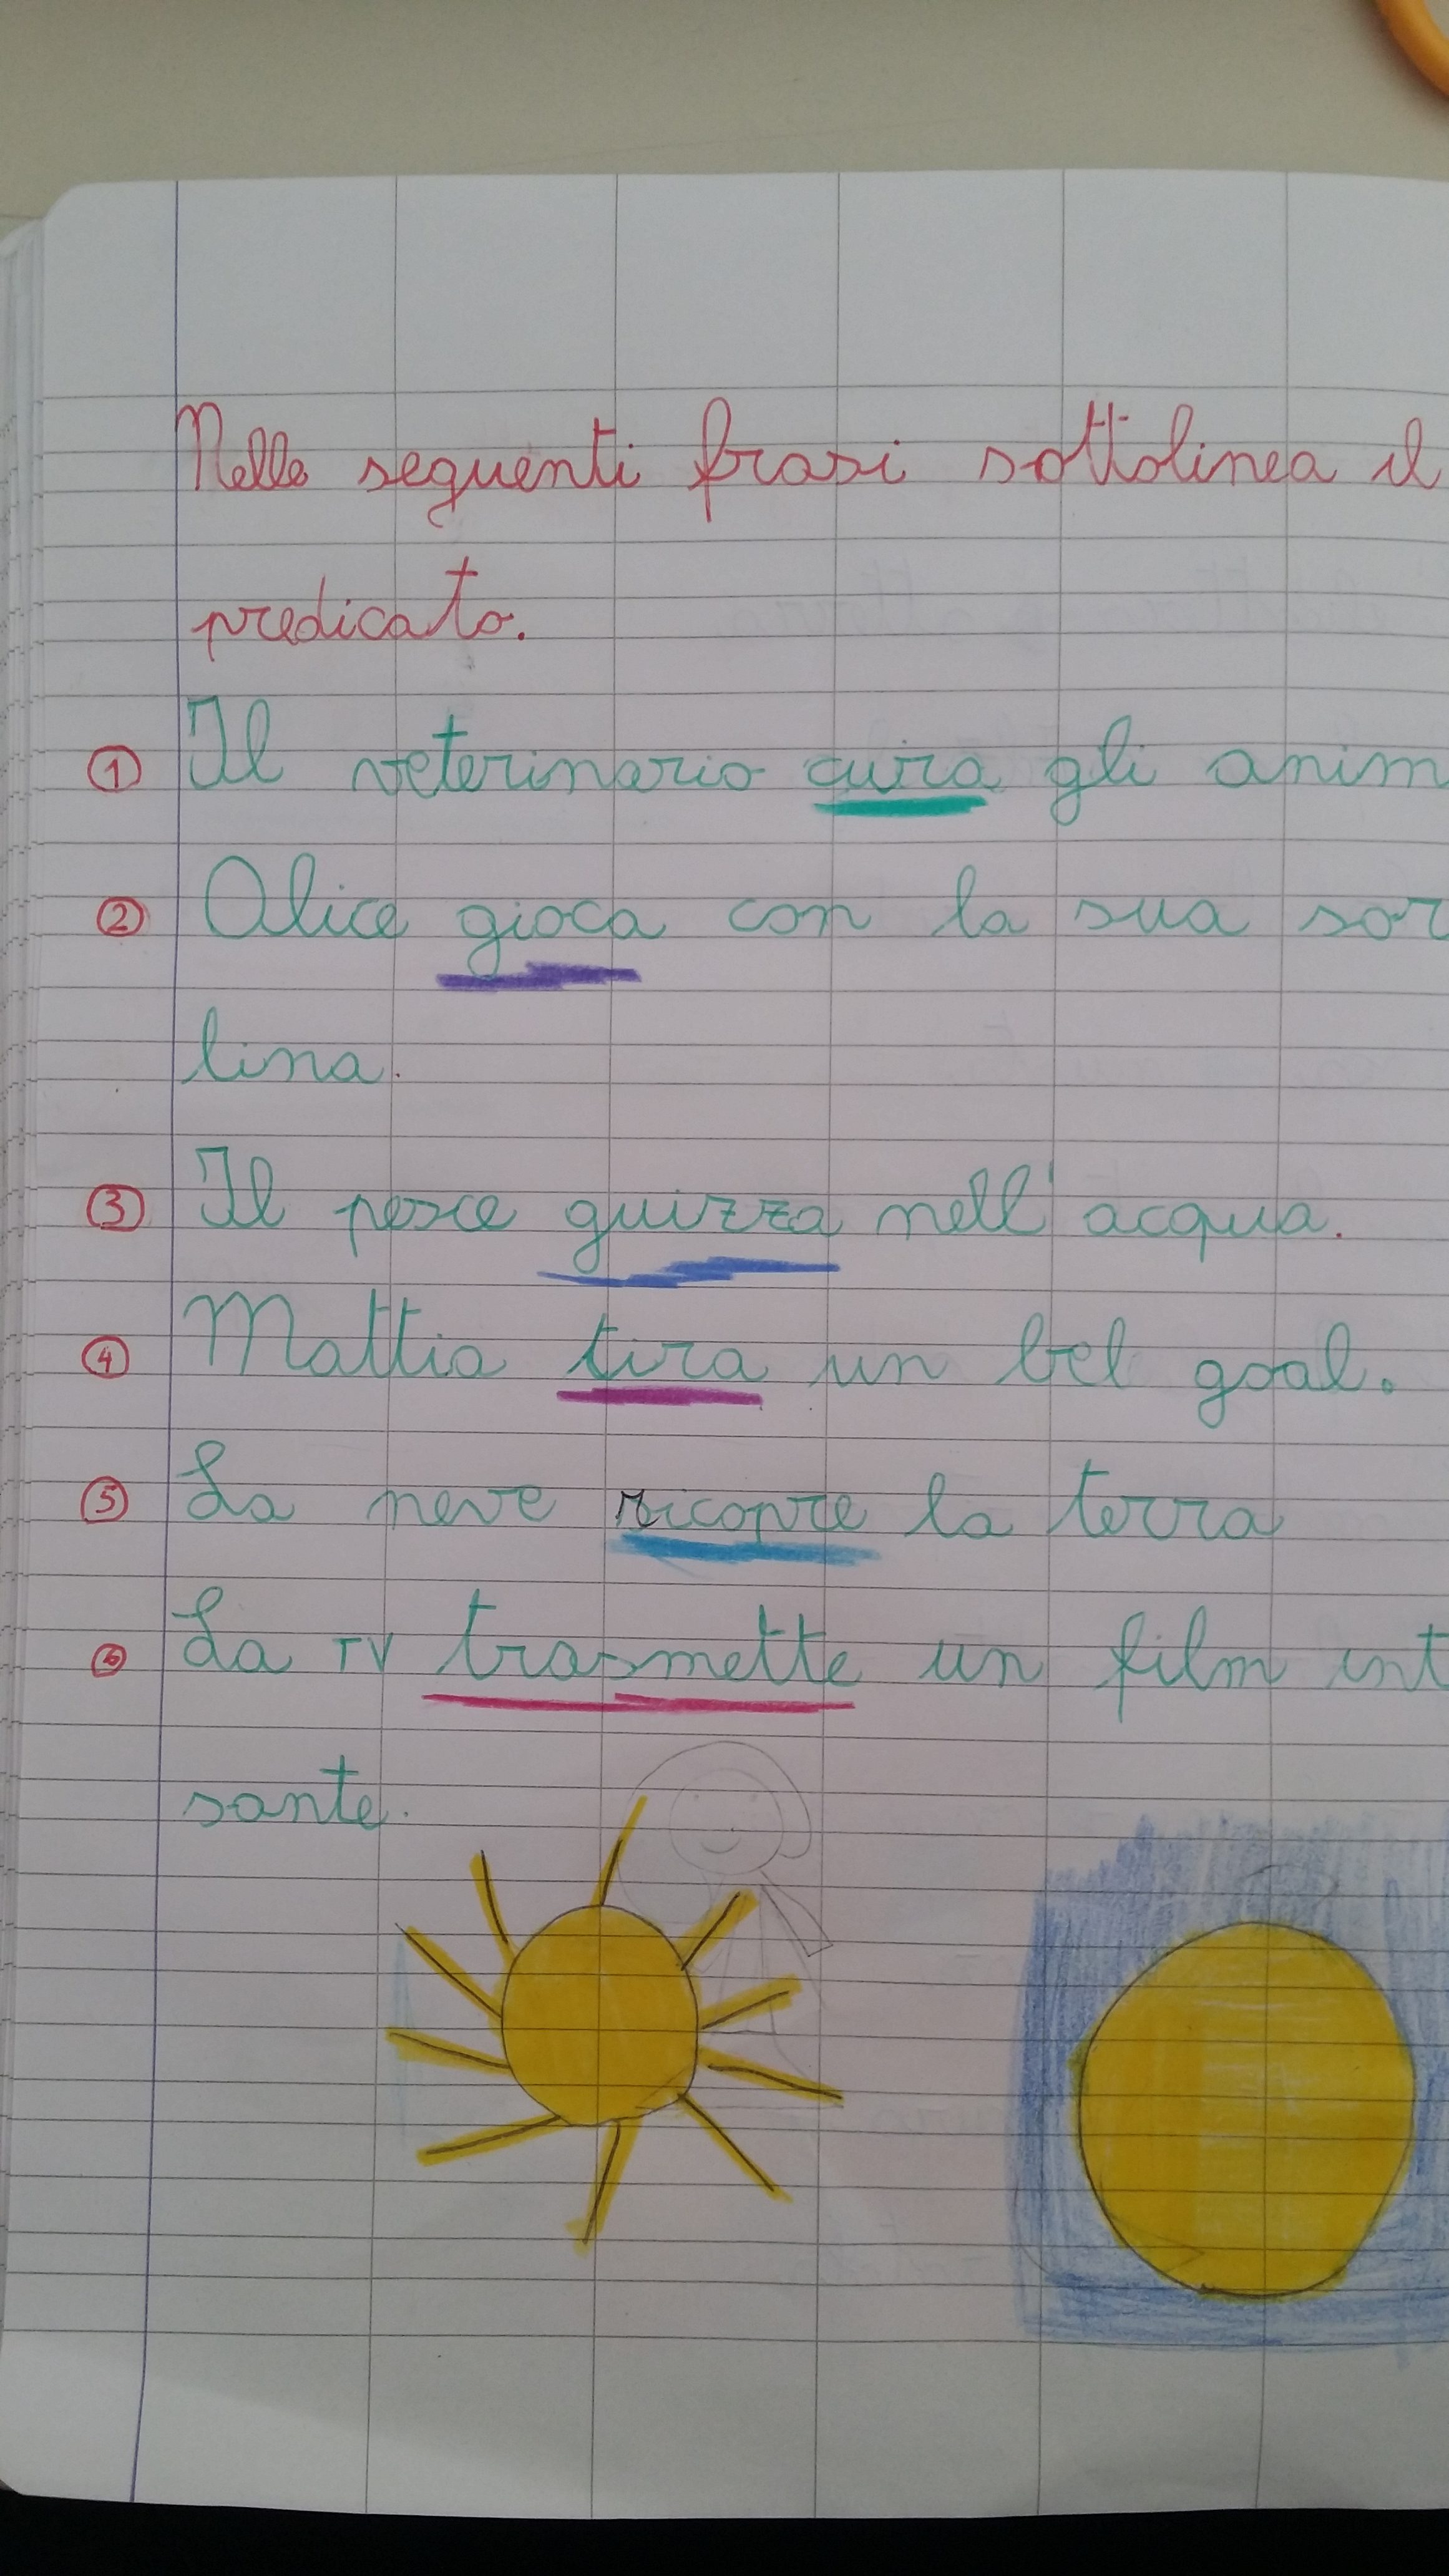 Nelle seguenti frasi sottolinea il
predicato.
① Il veterinario cura gli anim
② Alice gioca con la sua sor
lina.
③ Il pesce guizza nell'acqua.
④ Mattia tira un bel goal.
⑤ La neve ricopre la terra
⑥ La TV trasmette un film int
sante.